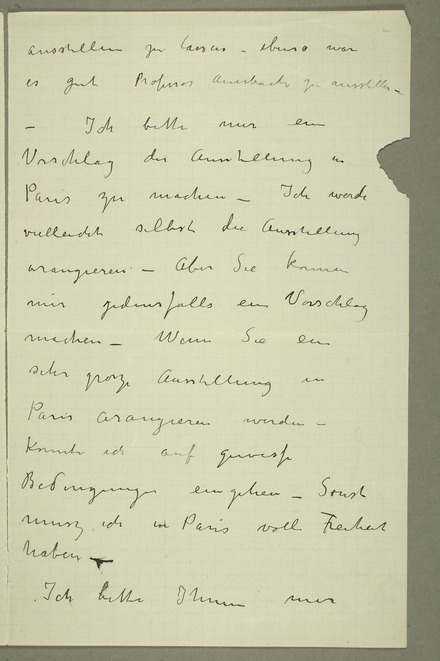 ausstellen zu lassen – ebenso war
es gut Professor Auerbach zu ausstellen –
– Ich bitte mir ein
Vorschlag der Ausstellung in
Paris zu machen – Ich werde
vielleicht selbst die Ausstellung
arangieren – Aber Sie können
mir jedenfalls ein Vorschlag
machen – Wenn Sie ein
sehr grosze Ausstellung in
Paris arangieren werden –
konnte ich auf gewisse
Bedingungen eingehen – Sonst
musz ich in Paris volle Freiheit
haben –
Ich bitte Ihnen mir